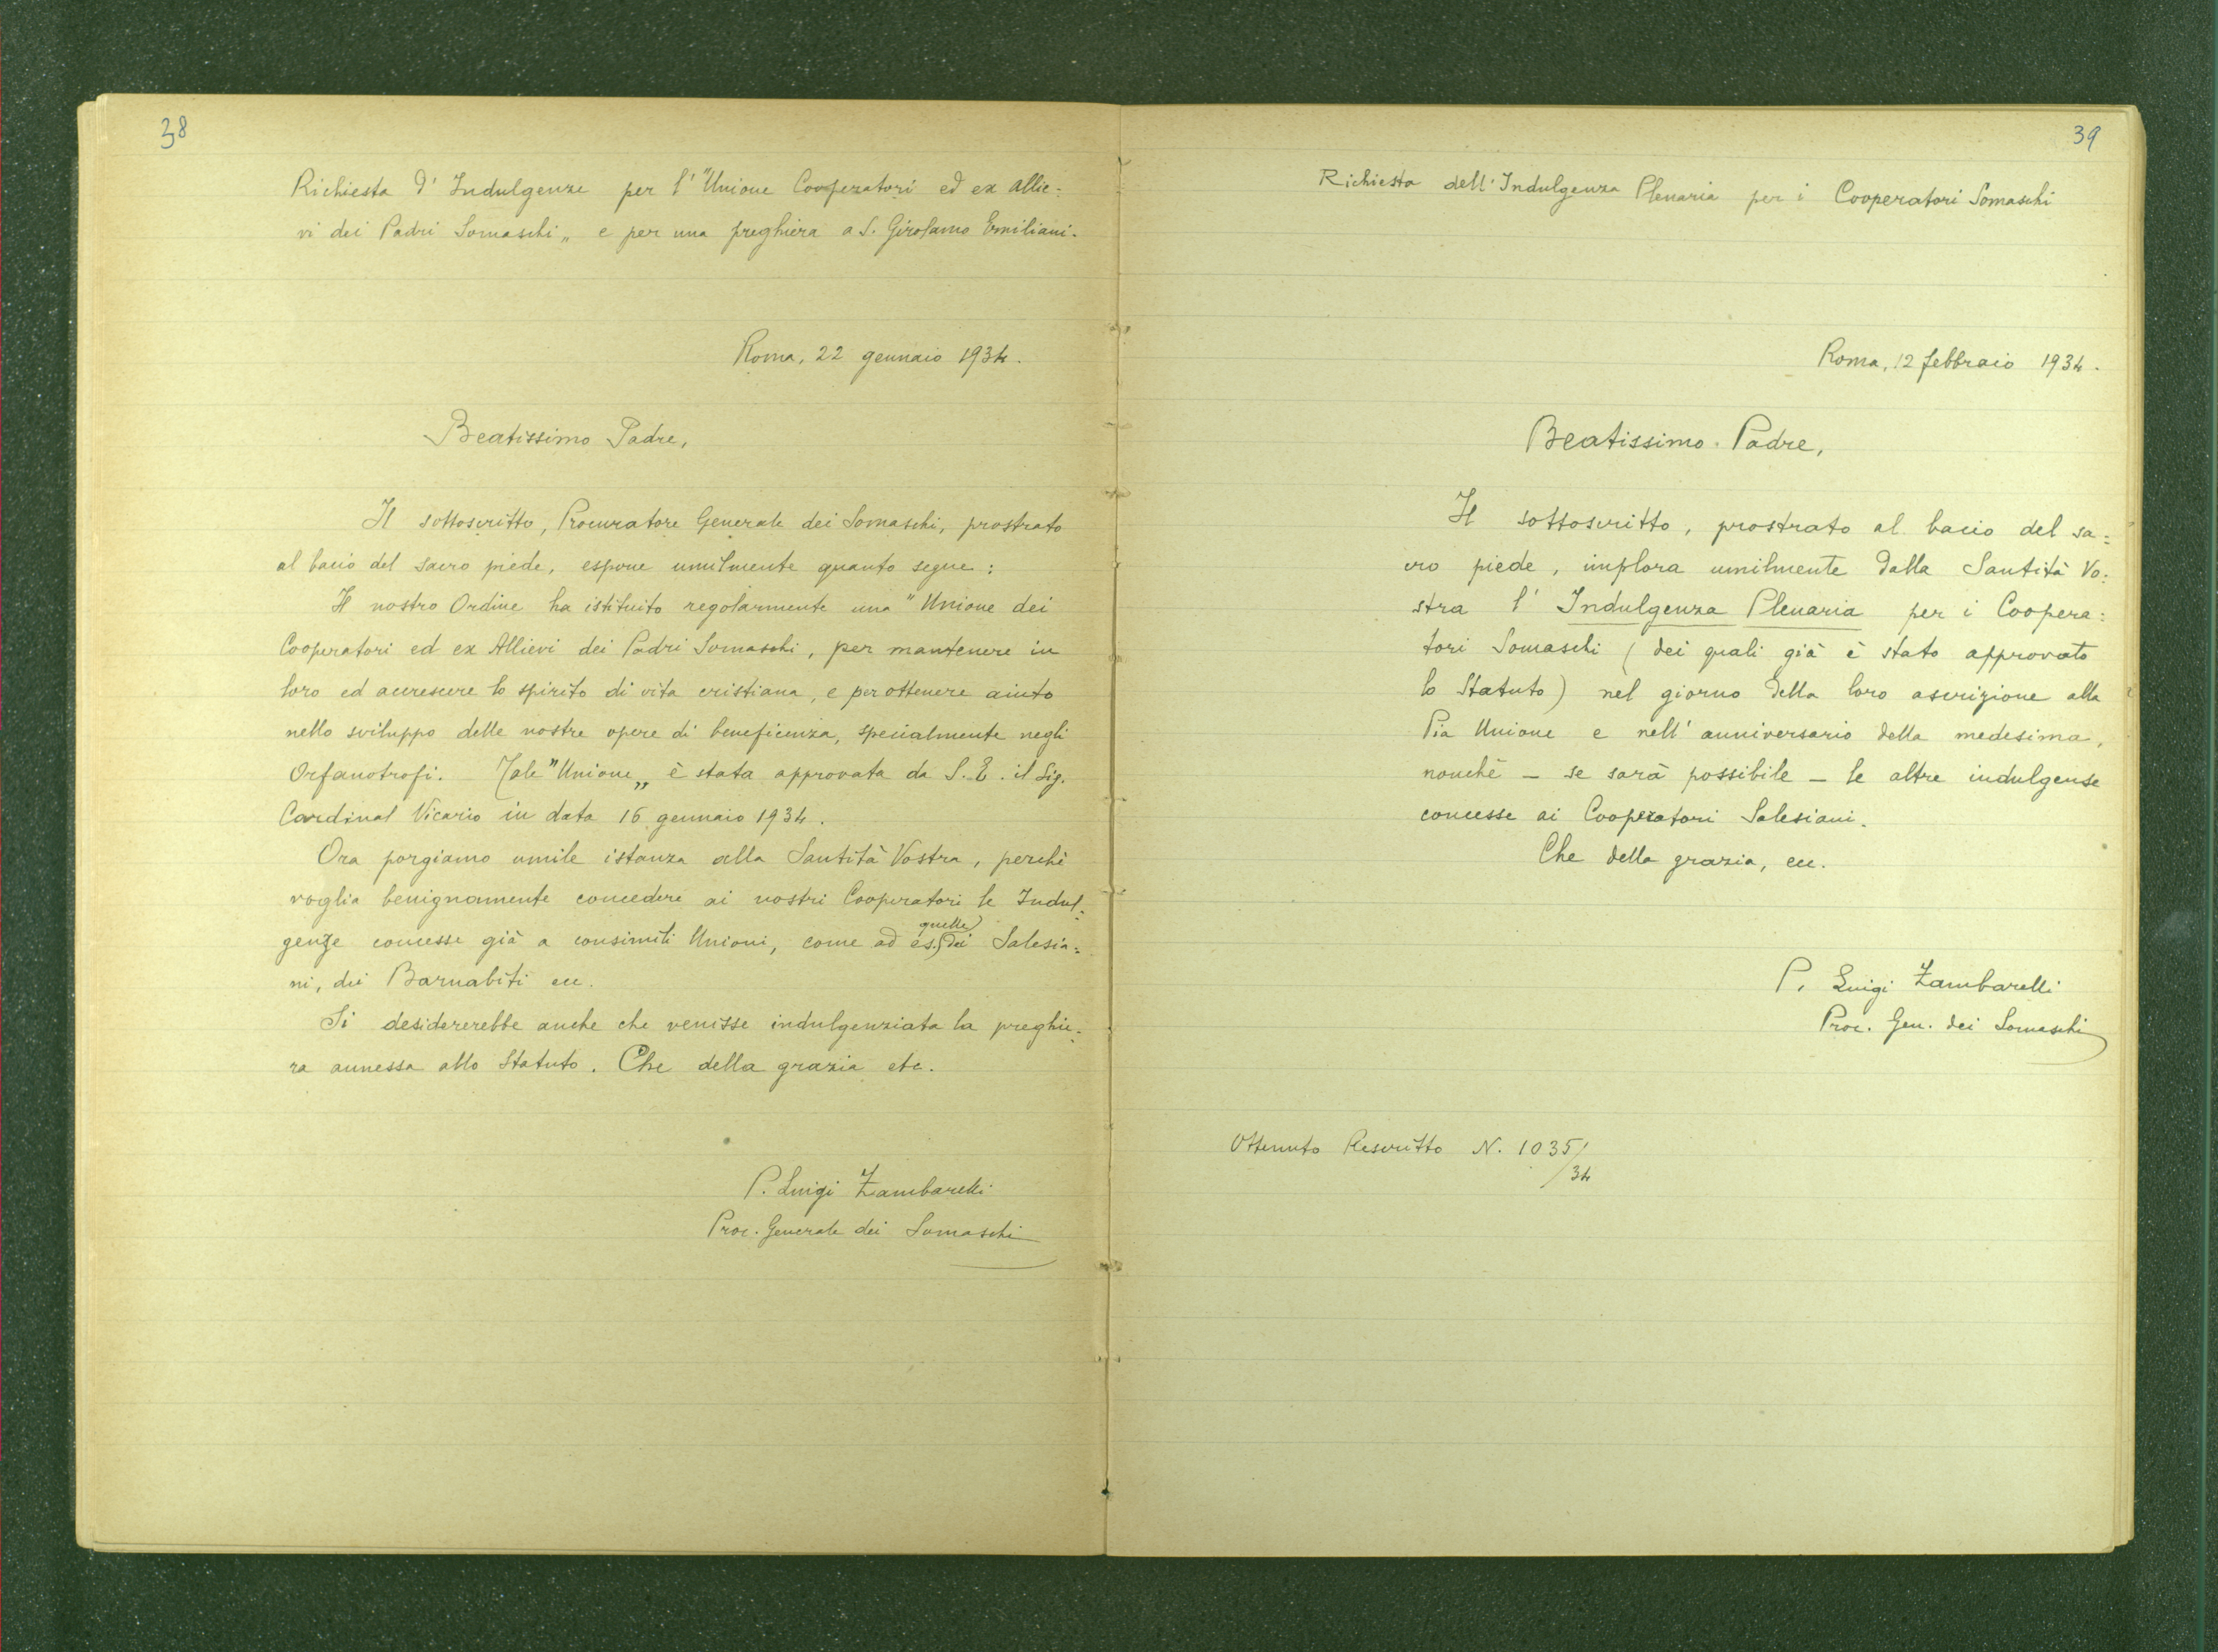 38
Richiesta d' Indulgenze per l' "Unione Cooperatori ed ex Allie=
vi dei Padri Somaschi„ e per una preghiera a S. Girolamo Emiliani.
Roma, 22 gennaio 1934.
Beatissimo Padre,
Il sottoscritto, Procuratore Generale dei Somaschi, prostrato
al bacio del sacro piede, espone umilmente quanto segue:
Il nostro Ordine ha istituito regolarmente una "Unione dei
Cooperatori ed ex Allievi dei Padri Somaschi, per mantenere in
loro ed accrescere lo spirito di vita cristiana, e per ottenere aiuto
nello sviluppo delle nostre opere di beneficenza, specialmente negli
Orfanotrofi. Tale "Unione„ è stata approvata da S. E. il Sig.
Cardinal Vicario in data 16 gennaio 1934.
Ora porgiamo umile istanza alla Santità Vostra, perchè
voglia benignamente concedere ai nostri Cooperatori le Indul=
genze concesse già a consimili Unioni, come ad es. quelle dei Salesia=
ni, dei Barnabiti ecc.
Si desidererebbe anche che venisse indulgenziata la preghie=
ra annessa allo Statuto. Che della grazia etc.
P. Luigi Zambarelli
Proc. Generale dei Somaschi
39
Richiesta dell'Indulgenza Plenaria per i Cooperatori Somaschi
Roma, 12 febbraio 1934.
Beatissimo Padre,
Il sottoscritto, prostrato al bacio del sa=
cro piede, implora umilmente dalla Santità Vo=
stra l' Indulgenza Plenaria per i Coopera=
tori Somaschi (dei quali già è stato approvato
lo Statuto) nel giorno della loro ascrizione alla
Pia Unione e nell' anniversario della medesima,
nonchè – se sarà possibile – le altre indulgenze
concesse ai Cooperatori Salesiani.
Che della grazia, ecc.
P. Luigi Zambarelli
Proc. Gen. dei Somaschi
Ottenuto Rescritto N. 1035/34